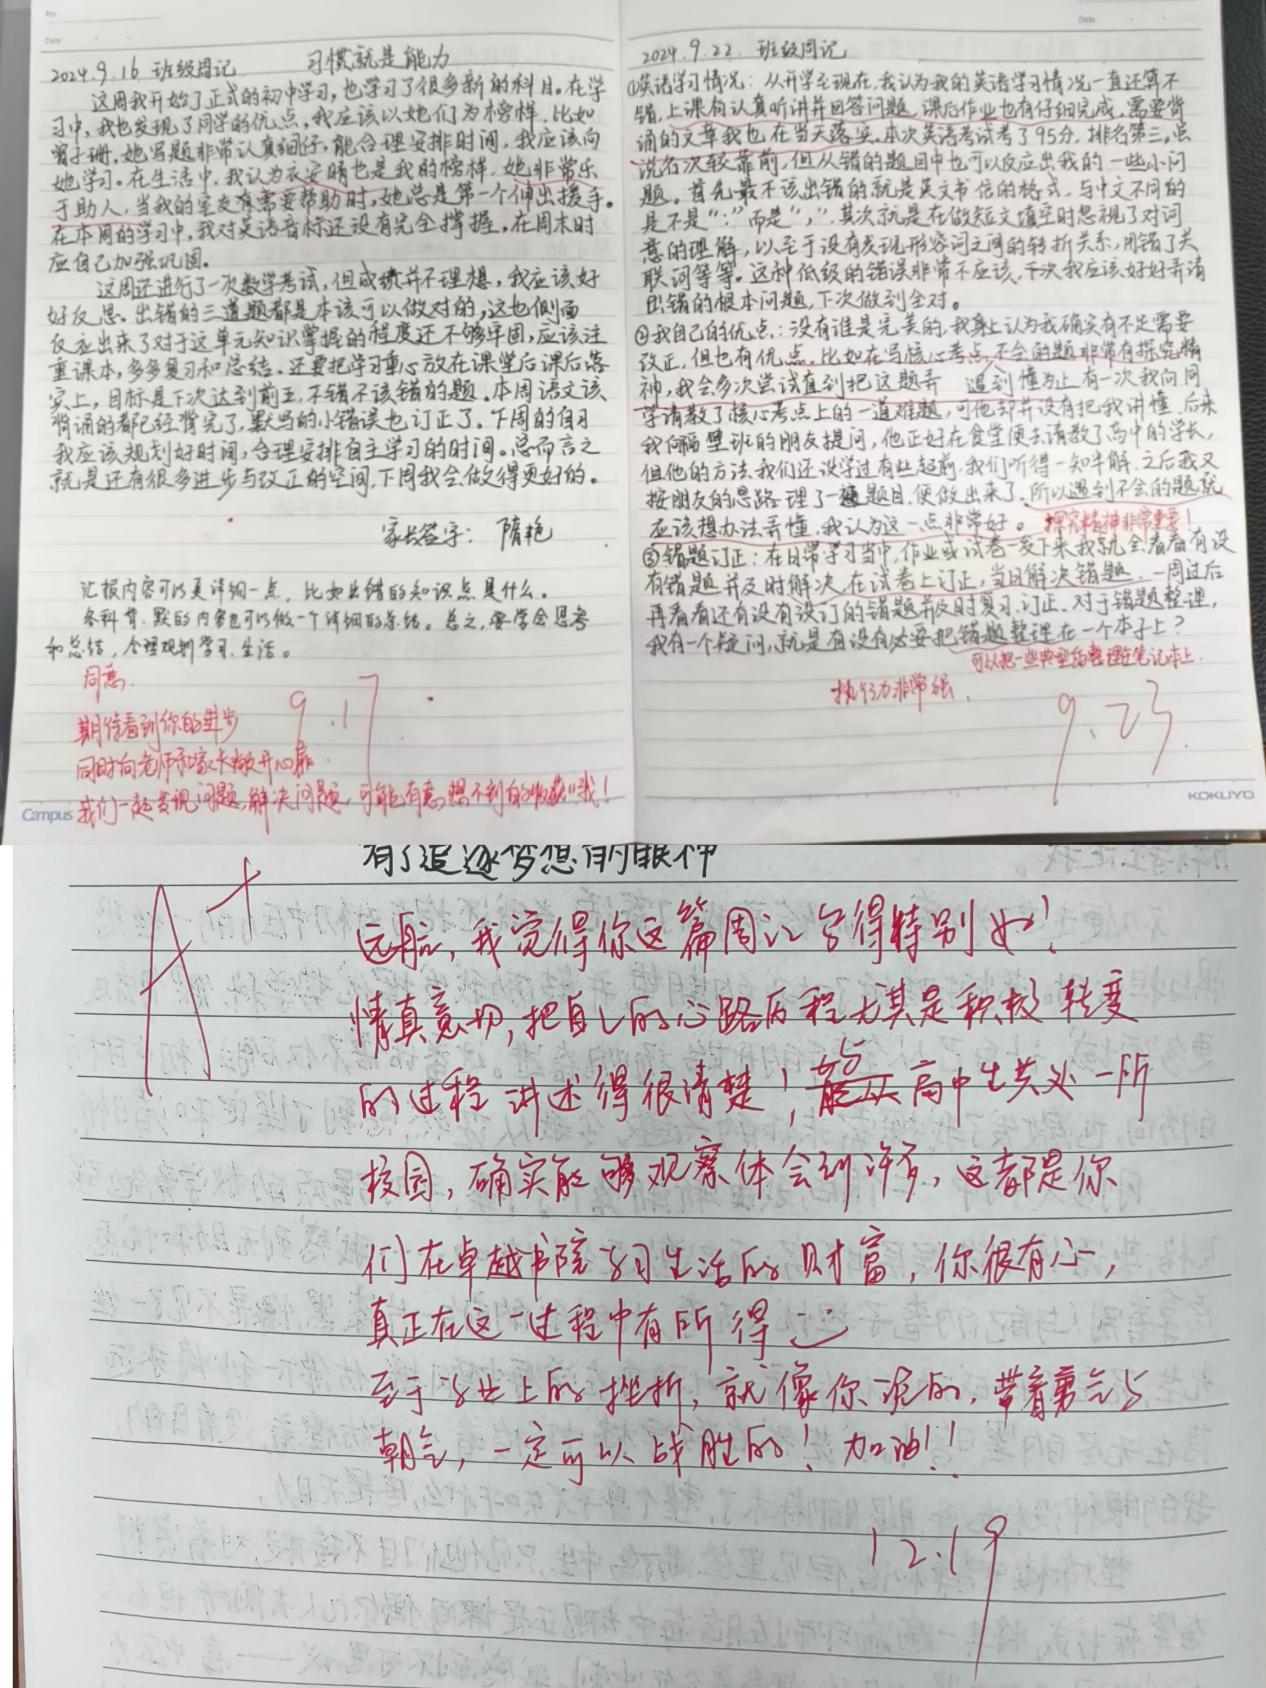 No.
Date
2024.9.16 班级周记 习惯就是能力
这周我开始了正式的初中学习,也学习了很多新的科目。在学
习中,我也发现了同学的优点,我应该以她们为榜样,比如
她写题非常认真细仔,能合理安排时间,我应该向
她学习。在生活中,我认为衣安晴也是我的榜样,她非常乐
于助人,当我的室友有需要帮助时,她总是第一个伸出援手。
在本周的学习中,我对英语音标还没有完全撑握,在周末时
应自己加强巩固。
这周还进行了一次数学考试,但成绩并不理想,我应该好
好反思。出错的三道题都是本该可以做对的,这也侧面
反应出来了对于这单元知识掌握的程度还不够牢固,应该注
重课本,多多复习和总结。还要把学习重心放在课堂后课后落
实上,目标是下次达到前五,不错不该错的题。本周语文该
背诵的都已经背完了,默写的小错误也订正了。下周的自习
我应该规划好时间,合理安排自主学习的时间。总而言之
就是还有很多进步与改正的空间,下周我会做得更好的。
家长签字: 隋艳
汇报内容可以更详细一点,比如出错的知识点是什么。
各科背、默的内容也可以做一个详细的总结。总之,要学会思考
和总结,合理规划学习、生活。
同意。
期待看到你的进步 9.17
同时向老师和家长敞开心扉
我们一起发现问题,解决问题,可能有意想不到的收获哦!
Campus
Date
2024.9.22. 班级周记
①英语学习情况:从开学至现在,我认为我的英语学习情况一直还算不
错,上课有认真听讲并回答问题,课后作业也有仔细完成,需要背
诵的文章我也在当天落实。本次英语考试考了95分,排名第三,虽
说名次较靠前,但从错的题目中也可以反应出我的一些小问
题。首先最不该出错的就是英文书信的格式,与中文不同的
是不是“:”而是“,”.其次就是在做短文填空时忽视了对词
意的理解,以至于没有发现形容词之间的转折关系,用错了关
联词等等。这种低级的错误非常不应该,下次我应该好好弄清
出错的根本问题,下次做到全对。
②我自己的优点:没有谁是完美的,我身上认为我确实有不足需要
改正,但也有优点。比如在写核心考点,不会的题非常有探究精
神,我会多次尝试直到把这题弄 遇到懂为止有一次我向同
学请教了核心考点上的一道难题,可他却并没有把我讲懂.后来
我向隔壁班的朋友提问,他正好在食堂便去请教了高中的学长,
但他的方法,我们还没学过有些超前,我们听得一知半解.之后我又
按朋友的思路理了一遍题目,便做出来了.所以遇到不会的题就
应该想办法弄懂,我认为这一点非常好。 探究精神非常重要!
③错题订正:在日常学习当中,作业或试卷一发下来,我就会看看有没
有错题并及时解决,在试卷上订正,当日解决错题.一周过后
再看看还有没有没订的错题并及时复习、订正.对于错题整理,
我有一个疑问,就是有没有必要把错题整理在一个本子上?
可以把一些典型的整理在笔记本上.
执行力非常强. 9.23
KOKUYO
有了追逐梦想的眼神
A+
远航,我觉得你这篇周记写得特别好!
情真意切,把自己的心路历程尤其是积极转变
的过程讲述得很清楚!与高中生共处一所
校园,确实能够观察体会到许多,这都是你
们在卓越书院学习生活的财富,你很有心,
真正在这一过程中有所得
至于学业上的挫折,就像你说的,带着勇气与
朝气,一定可以战胜的!加油!!
12.19